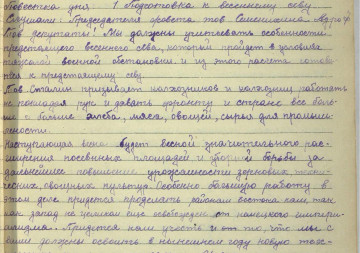 Повестка дня 1 Подготовка к весеннему севу.
Слушали: Председателя с/совета тов
Тов депутаты! Мы должны учитывать особенности
предстоящего весеннего сева, который пройдет в условиях
тяжелой военной обстановки и из этого расчета готови
ться к предстоящему севу.
Тов. Сталин призывает колхозников и колхозниц работать
не покладая рук и давать фронту и стране все боль
ше и больше хлеба, мяса, овощей, сырья для промыш
ленности.
Наступающая весна будет весной значительного рас
ширения посевных площадей и упорной борьбы за
дальнейшее повышение урожайности зерновых техни
ческих, овощных культур. Особенно большую работу в
этом деле придется проделать районам востока нам, так
как запад не целиком еще освобожден от немецкого импери
ализма. Придется нам учесть и то, что мы с
вами должны освоить в нынешнем году новую